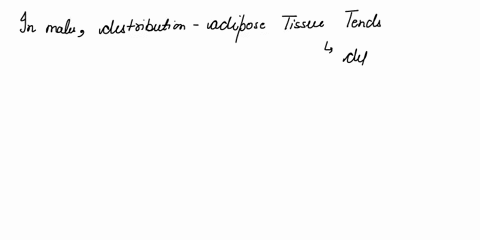 In males, distribution - adipose Tissue Tends
↳ de